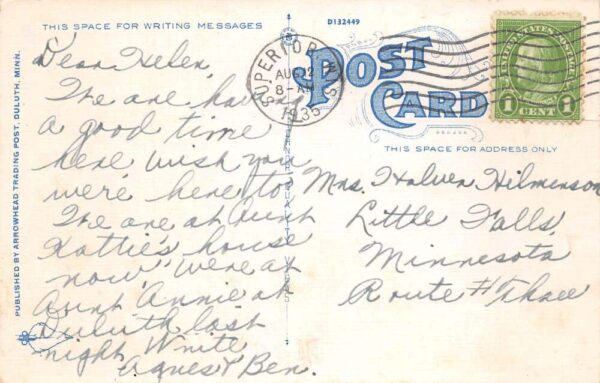 THIS SPACE FOR WRITING MESSAGES
D132449
Dear Helen,
We are having
a good time
here wish you
were here too
We are at Aunt
Kattie's house
now, were at
Aunt Annie at
Duluth last
night Write
Agnes & Ben.
PUBLISHED BY ARROWHEAD TRADING POST, DULUTH, MINN.
SUPERIOR WIS
AUG 12
8-AM
1935
POST
CARD
UNITED STATES POSTAGE
1 CENT 1
THIS SPACE FOR ADDRESS ONLY
Mrs. Halver Hilmerson
Little Falls,
Minnesota
Route # Three